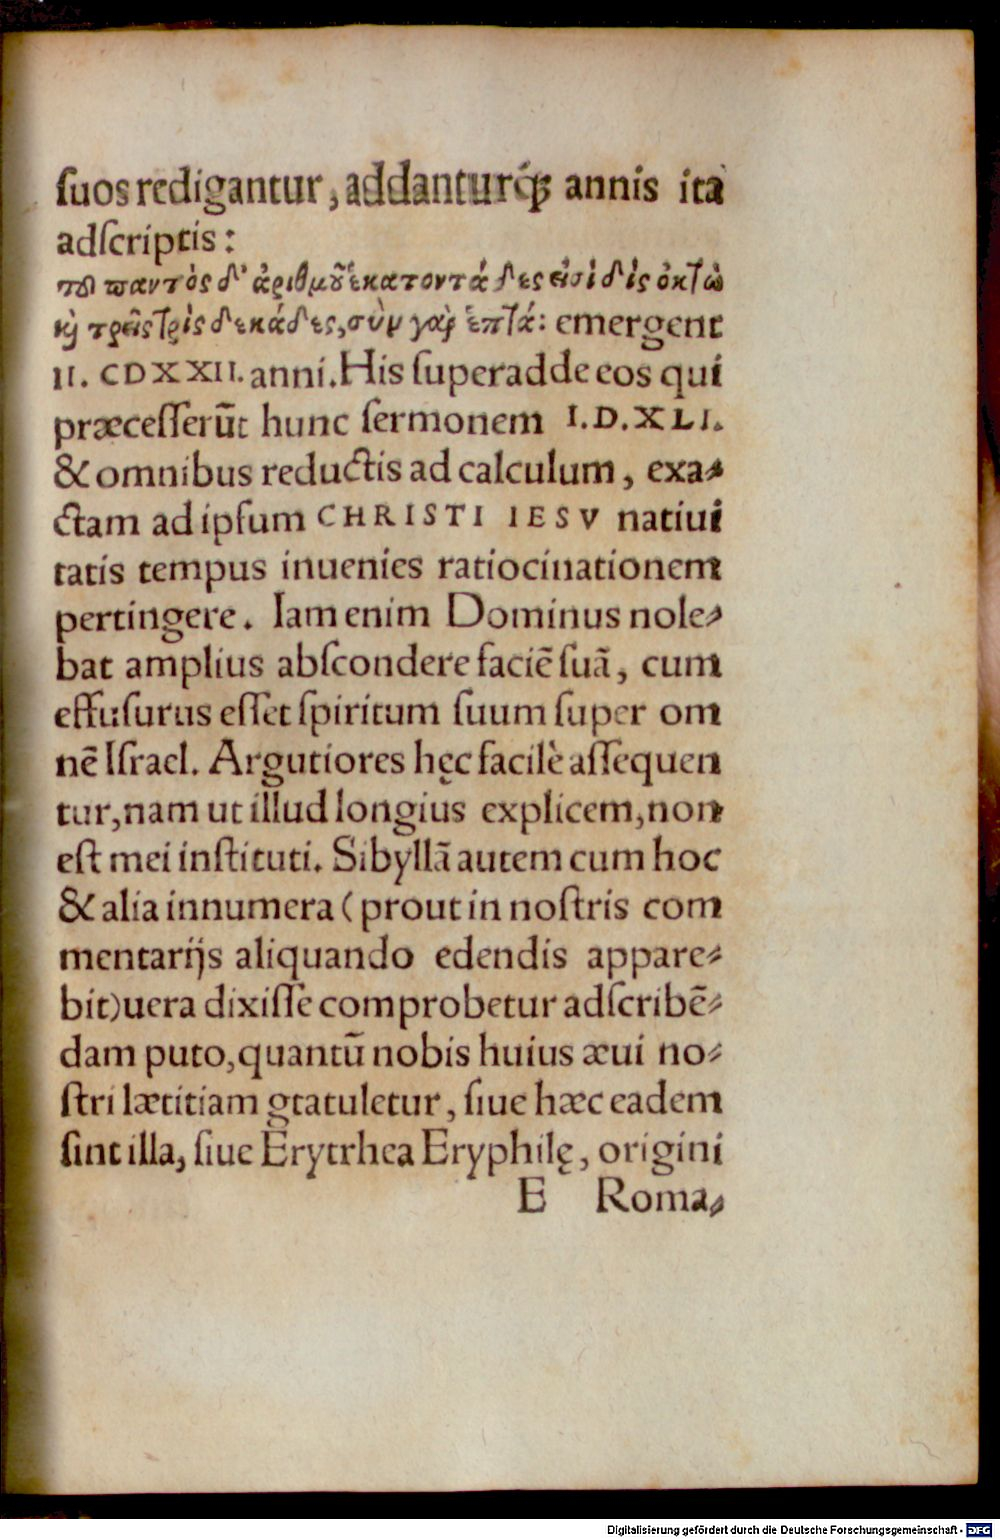 ſuos redigantur, addanturq́; annis ita
adſcriptis:
τοῦ παντὸς δ' ἀριθμοῦ ἑκατοντάδες εἰσὶ δὶς ὀκτὼ
καὶ τρεῖς τρὶς δεκάδες, σὺν γὰρ ἑπτά: emergent
II. CDXXII. anni. His ſuperadde eos qui
præceſſerūt hunc ſermonem I.D.XLI.
& omnibus reductis ad calculum, exa-
ctam ad ipſum CHRISTI IESV natiui
tatis tempus inuenies ratiocinationem
pertingere. Iam enim Dominus nole-
bat amplius abſcondere faciē ſuā, cum
effuſurus eſſet ſpiritum ſuum ſuper om
nē Iſrael. Argutiores hęc facilè aſſequen
tur, nam ut illud longius explicem, non
eſt mei inſtituti. Sibyllā autem cum hoc
& alia innumera (prout in noſtris com
mentarijs aliquando edendis appare-
bit) uera dixiſſe comprobetur adſcribē-
dam puto, quantū nobis huius æui no-
ſtri lætitiam gtatuletur, ſiue hæc eadem
ſint illa, ſiue Erytrhea Eryphilę, origini
E Roma-
Digitalisierung gefördert durch die Deutsche Forschungsgemeinschaft - DFG